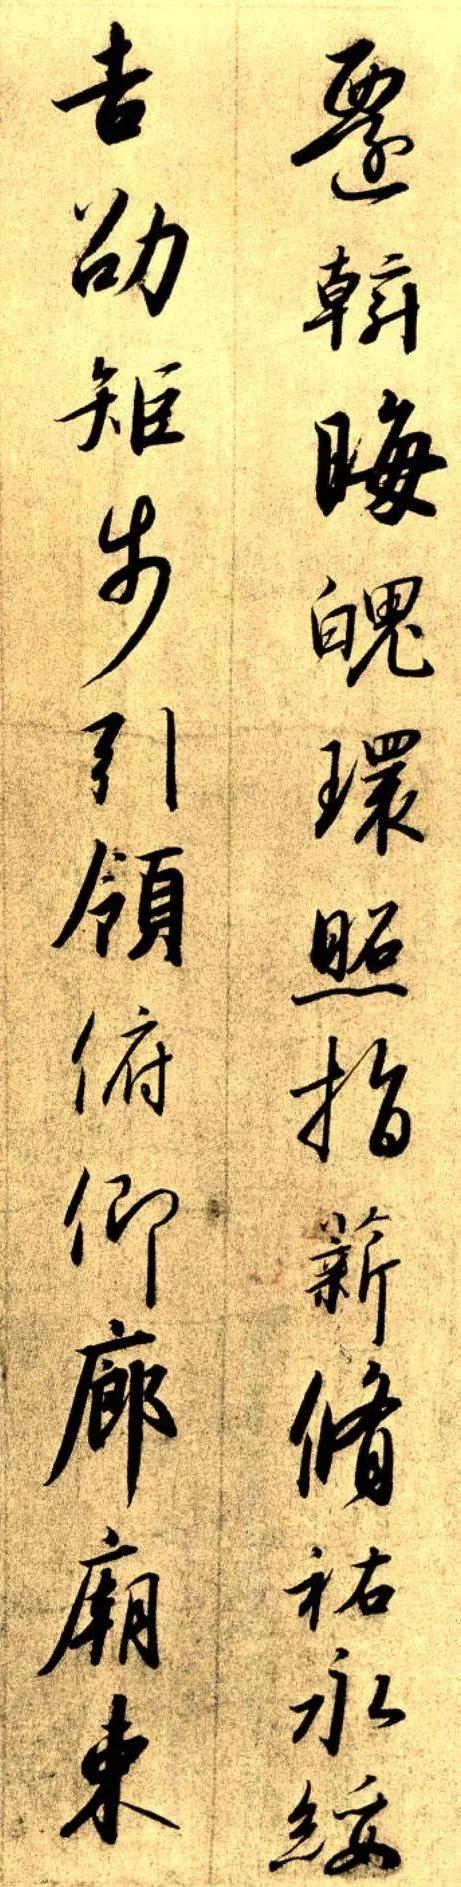 還斡晦魄環照指薪脩祜永綏
吉劭矩步引領俯仰廊廟束